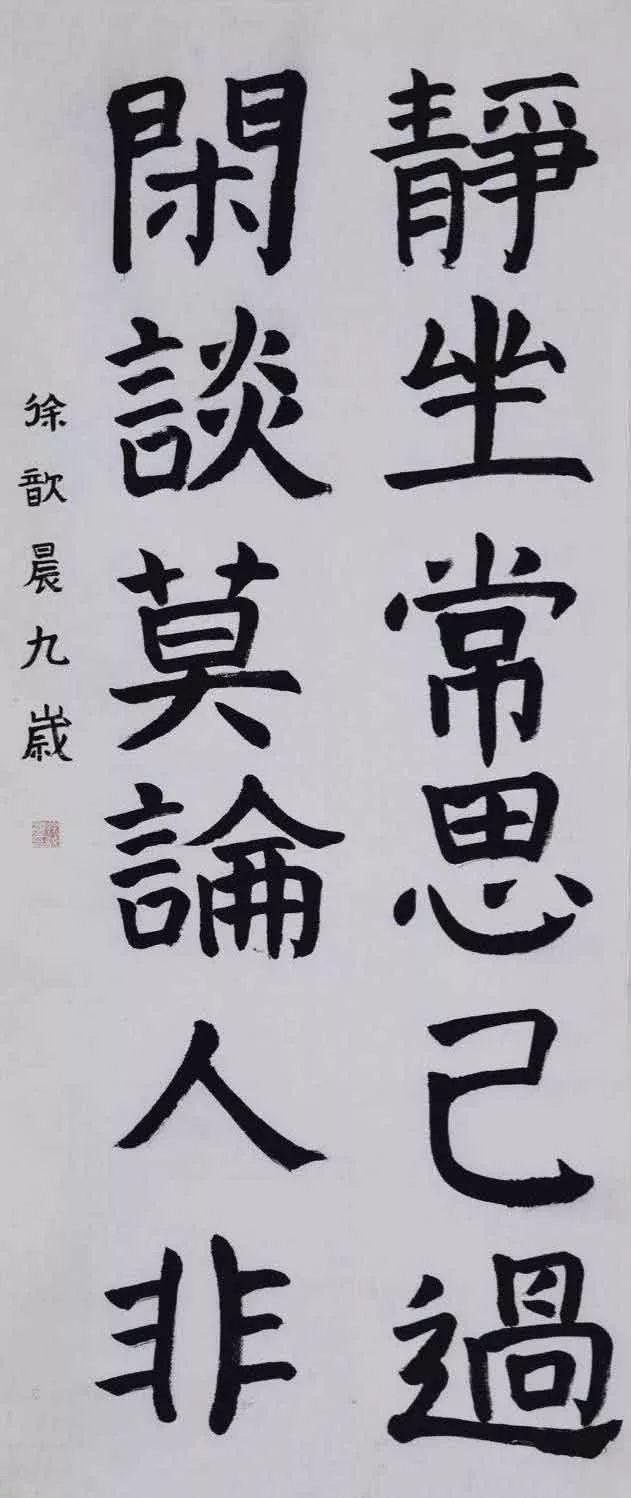 靜坐常思己過
閑談莫論人非
徐歆晨九歲